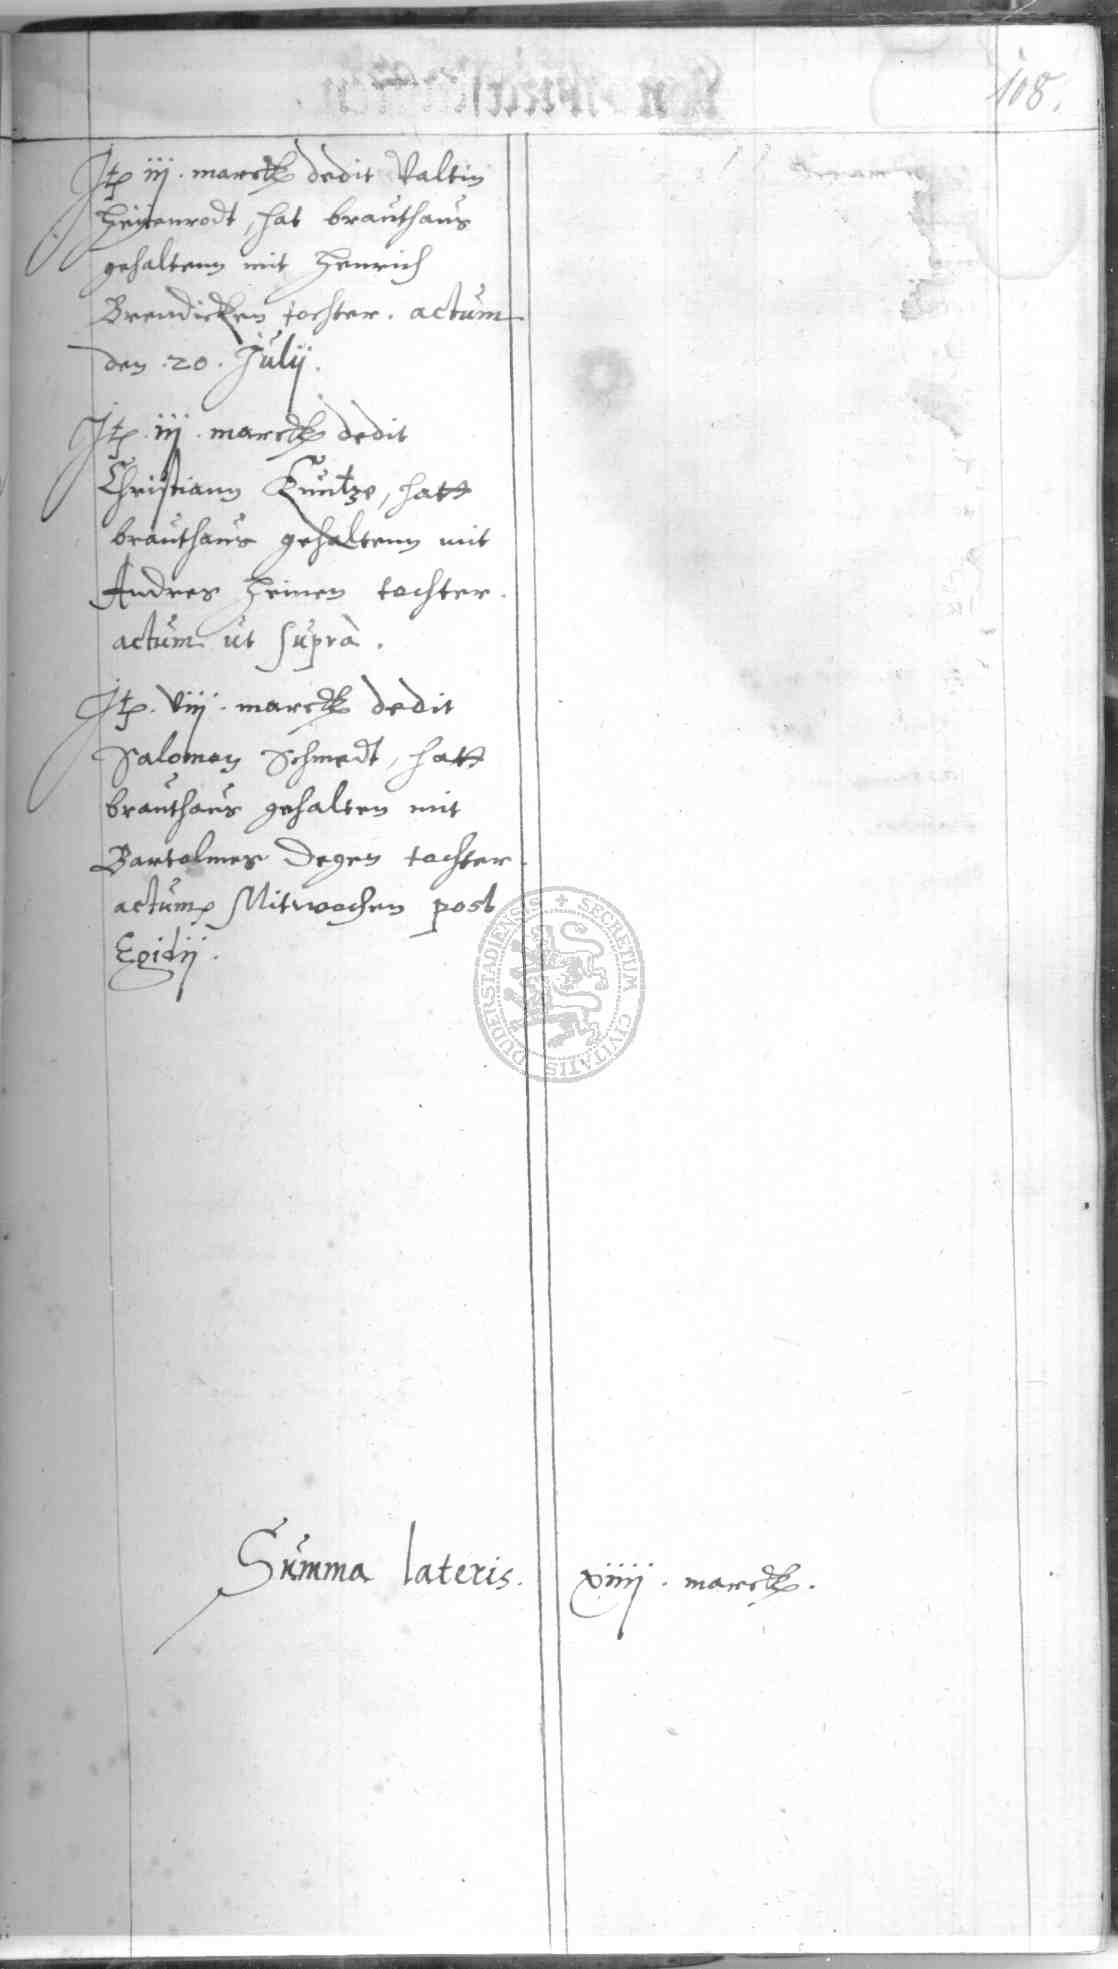 108.
Itp iij. marck dedit Valtin
Heienrodt, hat brauthaus
gehaltenn mit Henrich
Brendicken tochter. actum
den .20. Julij.
Itp. iij. marck dedit
Christiann Kuntze, hatt
brauthaus gehaltenn mit
Andres Heinen tochter.
actum ut suprà.
Itp. viij. marck dedit
Salomon Schmedt, hatt
brauthaus gehalten mit
Bartolmes Degen tochter.
actum Mitwochen post
Egidij.
SECRETUM CIVITATIS DUDERSTADIENSIS
Summa lateris. xiiij. marck.